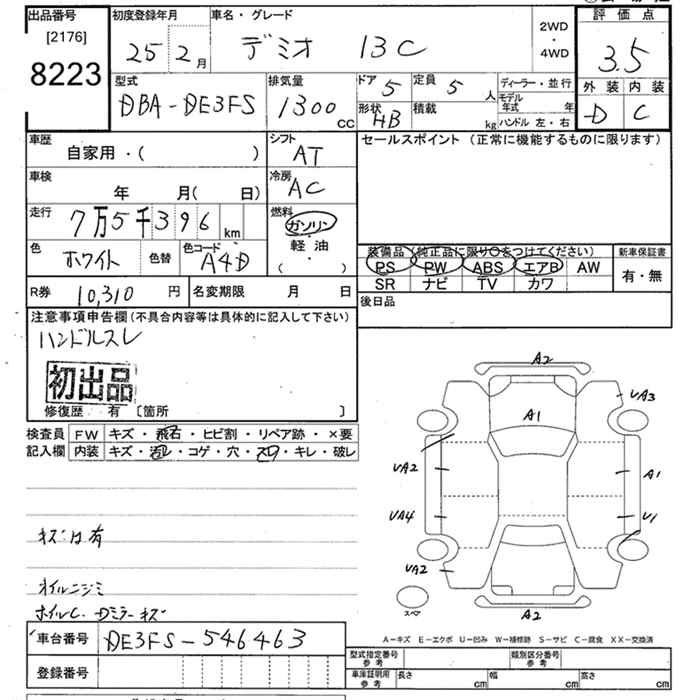 出品番号 初度登録年月 車名・グレード 評価点
[2176] 25 2月 デミオ 13C 2WD・4WD 3.5
8223
型式 排気量 ドア 5 定員 5人 ディーラー・並行 外装 内装
DBA-DE3FS 1300cc 形状 HB 積載 kg モデル年式 年 D C
ハンドル 左・右
車歴 シフト セールスポイント (正常に機能するものに限ります)
自家用・( ) AT
車検 冷房
年 月( 日) AC
走行 燃料
7万5千396km ガソリン
色 色替 色コード 軽油
ホワイト A4D ( ・ )
装備品(純正品に限り○をつけてください) 新車保証書
PS PW ABS エアB AW 有・無
SR ナビ TV カワ
R券 10,310円 名変期限 月 日 後日品
注意事項申告欄(不具合内容等は具体的に記入して下さい)
ハンドルスレ
初出品
修復歴 有 [箇所 ]
検査員 FW キズ・飛石・ヒビ割・リペア跡・×要
記入欄 内装 キズ・汚レ・コゲ・穴・スレ・キレ・破レ
A2
UA3
A1
UA2 A1
UA4 U1
UA2
スペア A2
キズ 有
オイルニジミ
ホイルC Dミラーキズ
A－キズ E－エクボ U－凹み W－補修跡 S－サビ C－腐食 XX－交換済
車台番号 DE3FS-546463
登録番号
型式指定番号 参考 類別区分番号 参考
車庫証明用 参考 長さ cm 幅 cm 高さ cm